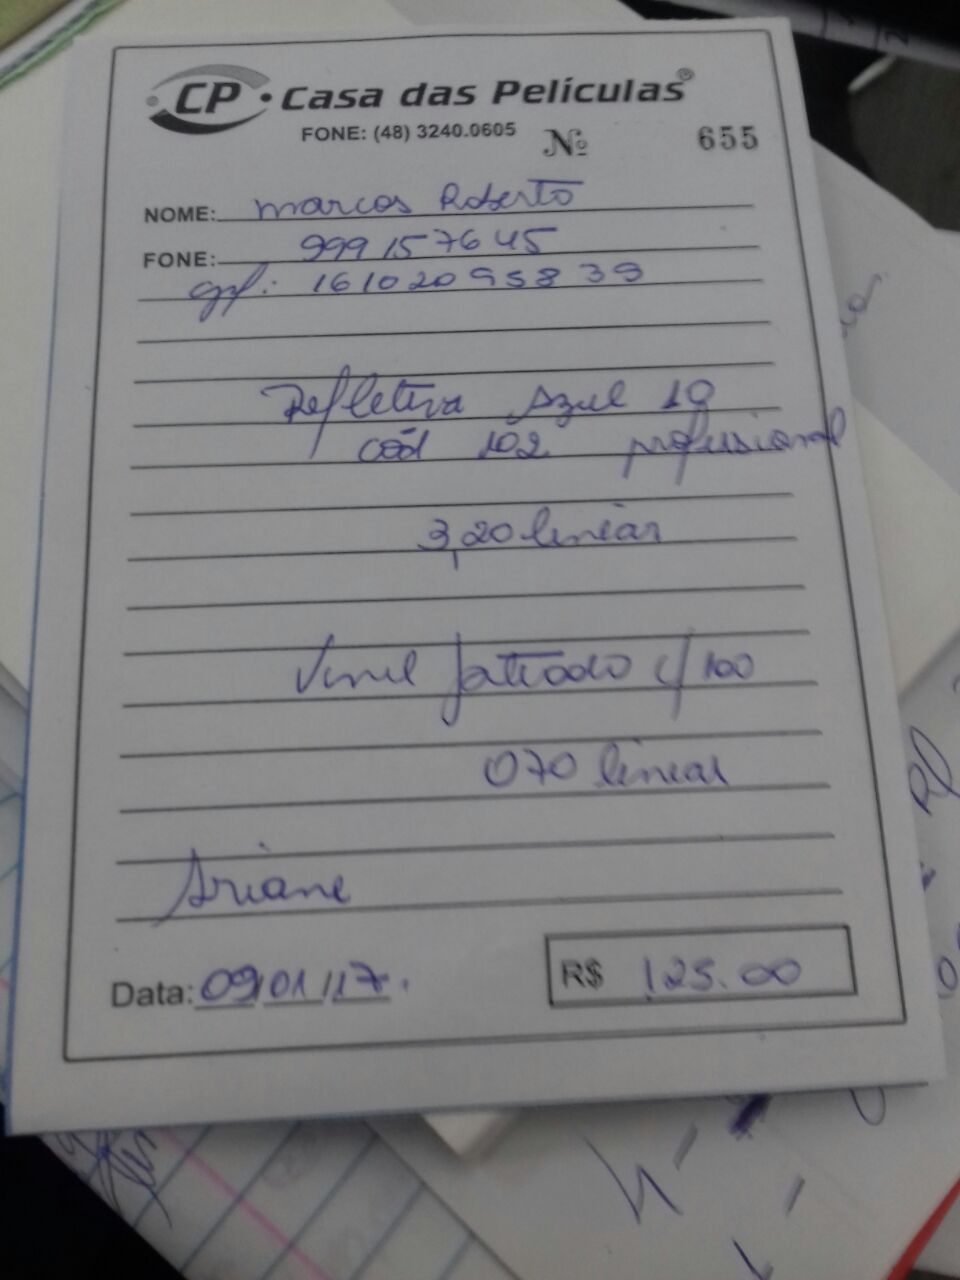 CP Casa das Películas®
FONE: (48) 3240.0605 Nº 655
NOME: Marcos Roberto
FONE: 999157645
cpf: 16102095839
Refletiva Azul 10
cód 102 profissional
3,20 linear
Vinil jateado c/ 100
070 linear
Ariane
Data: 09/01/17. R$ 125.00